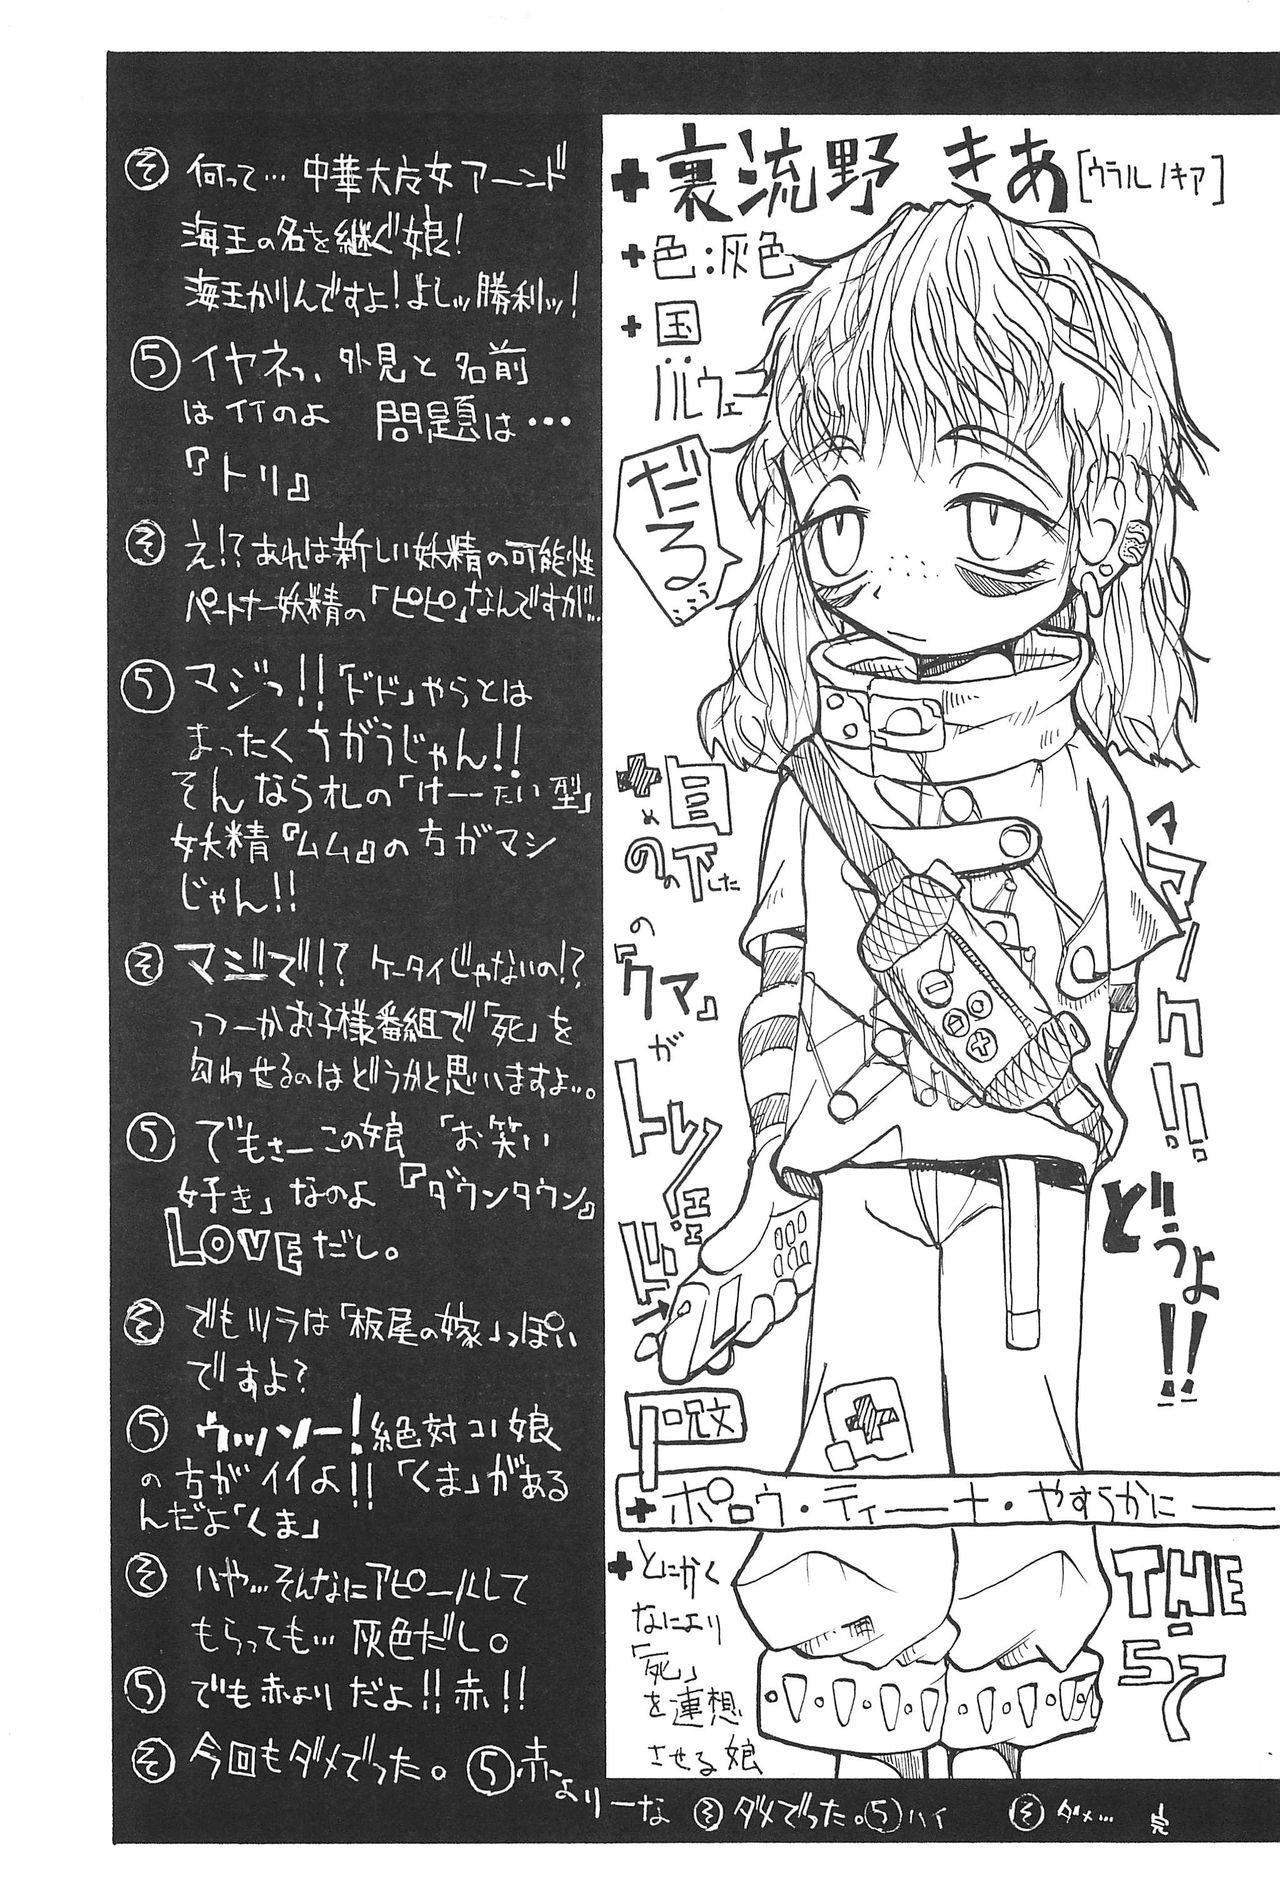 そ 何って… 中華大好女アーンド
海王の名を継ぐ娘!
海王かりんですよ!よしッ勝利ッ!
5 イヤネっ、外見と名前
はイイのよ 問題は…
『トリ』
そ え!?あれは新しい妖精の可能性
パートナー妖精の「ピピ」なんですが…
5 マジっ!!「ドド」やらとは
まったくちがうじゃん!!
そんなられの「けーたい型」
妖精『ムム』の方がマシ
じゃん!!
そ マジで!? ケータイじゃないの!?
っつーかお子様番組で「死」を
匂わせるのはどうかと思いますよ…。
5 でもさーこの娘 「お笑い
好き」なのよ 『ダウンタウン』
LOVEだし。
そ でもツラは「板尾の嫁」っぽい
ですよ?
5 ウッソー!絶対コノ娘
の方がイイよ!!「くま」がある
んだよ「くま」
そ いや…そんなにアピールして
もらっても… 灰色だし。
5 でも赤よりだよ!!赤!!
そ 今回もダメでった。 5 赤
よりーな そ ダメでった。 5 ハイ そ ダメ… 完
裏流野 きあ [ウラルノキア]
色:灰色
国:ノルウェー
だるぅぅ…
目の下のした
の
『クマ』
が
トレンド
マアーク!!
どうよ!!
呪文
ポロウ・ティーナ・やすらかにー
とにかく
なにより
「死」
を連想
させる娘
THE-57